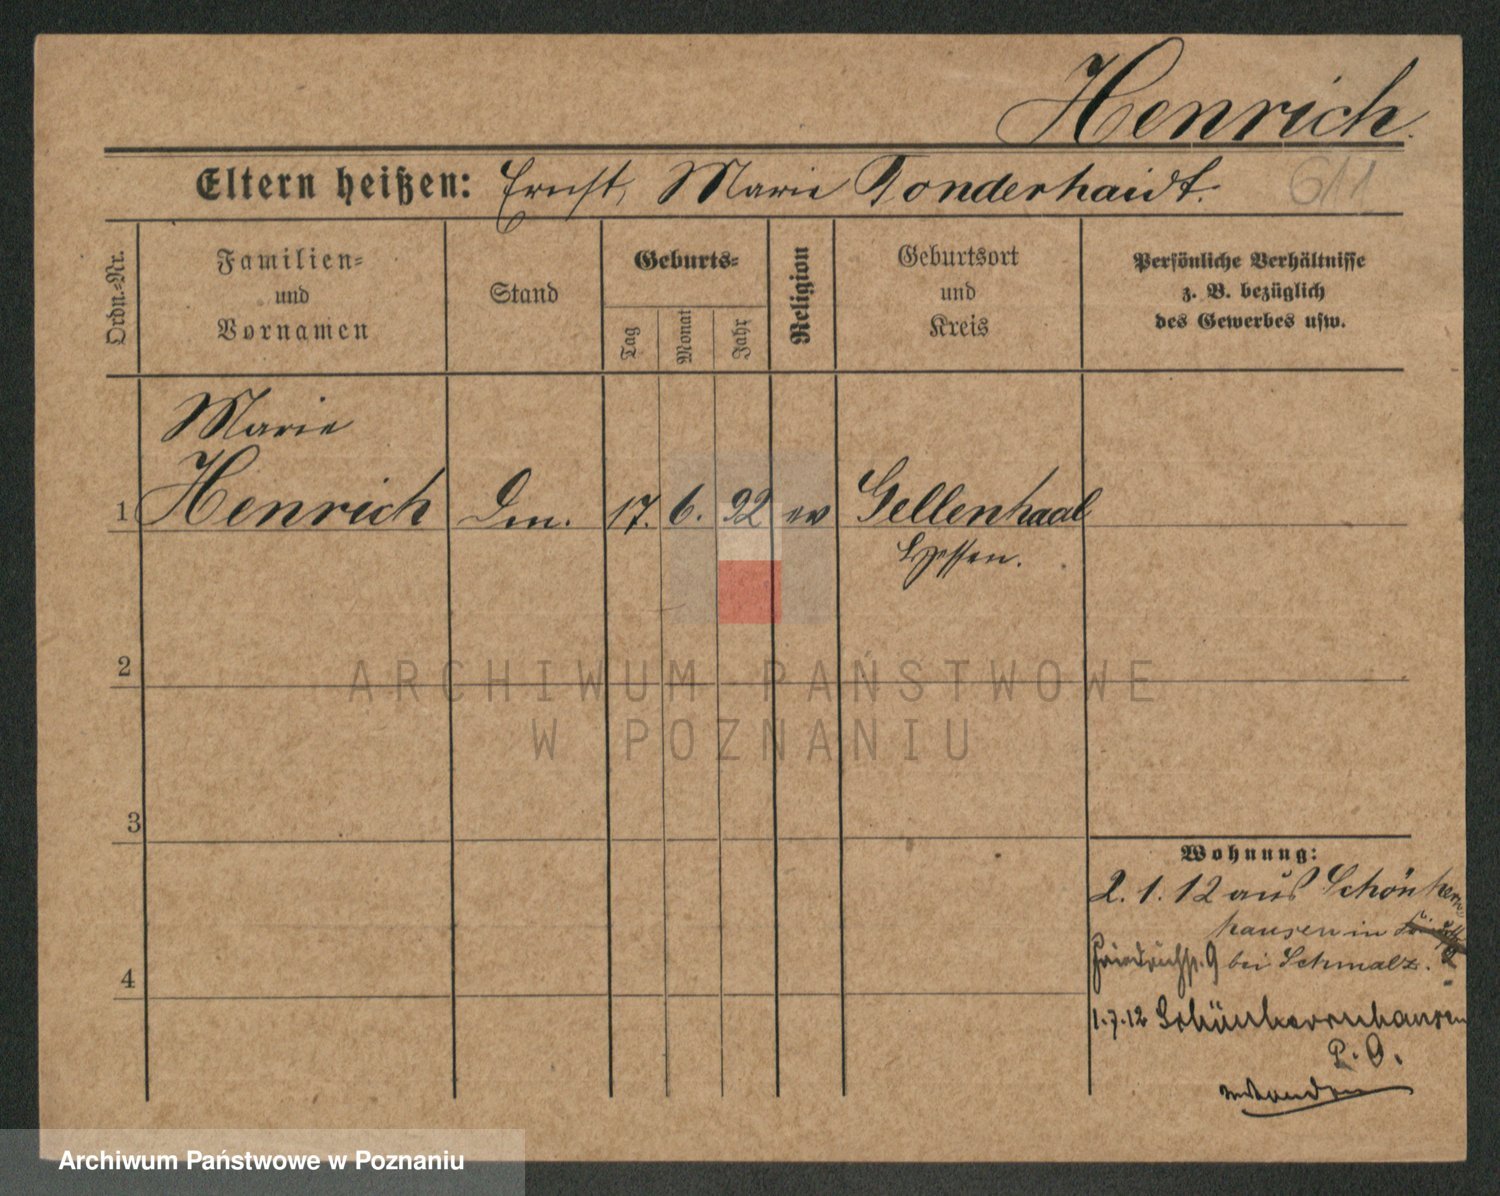 Henrich.
Eltern heißen: Ernst, Marie Tonderhaidt.
611
Ordn.-Nr.
Familien-
und
Vornamen
Stand
Geburts-
Tag
Monat
Jahr
Religion
Geburtsort
und
Kreis
Persönliche Verhältnisse
z. B. bezüglich
des Gewerbes usw.
Marie
1 Henrich Dm. 17. 6. 92 ev Gellenhaal
Hessen.
2
ARCHIWUM PAŃSTWOWE
W POZNANIU
3
Wohnung:
2. 1. 12 aus Schönhern
hausen in
Friedrichst. 9 bei Schmalz.
4
1.7.12 Schönherrnhausen
P. O.
Archiwum Państwowe w Poznaniu